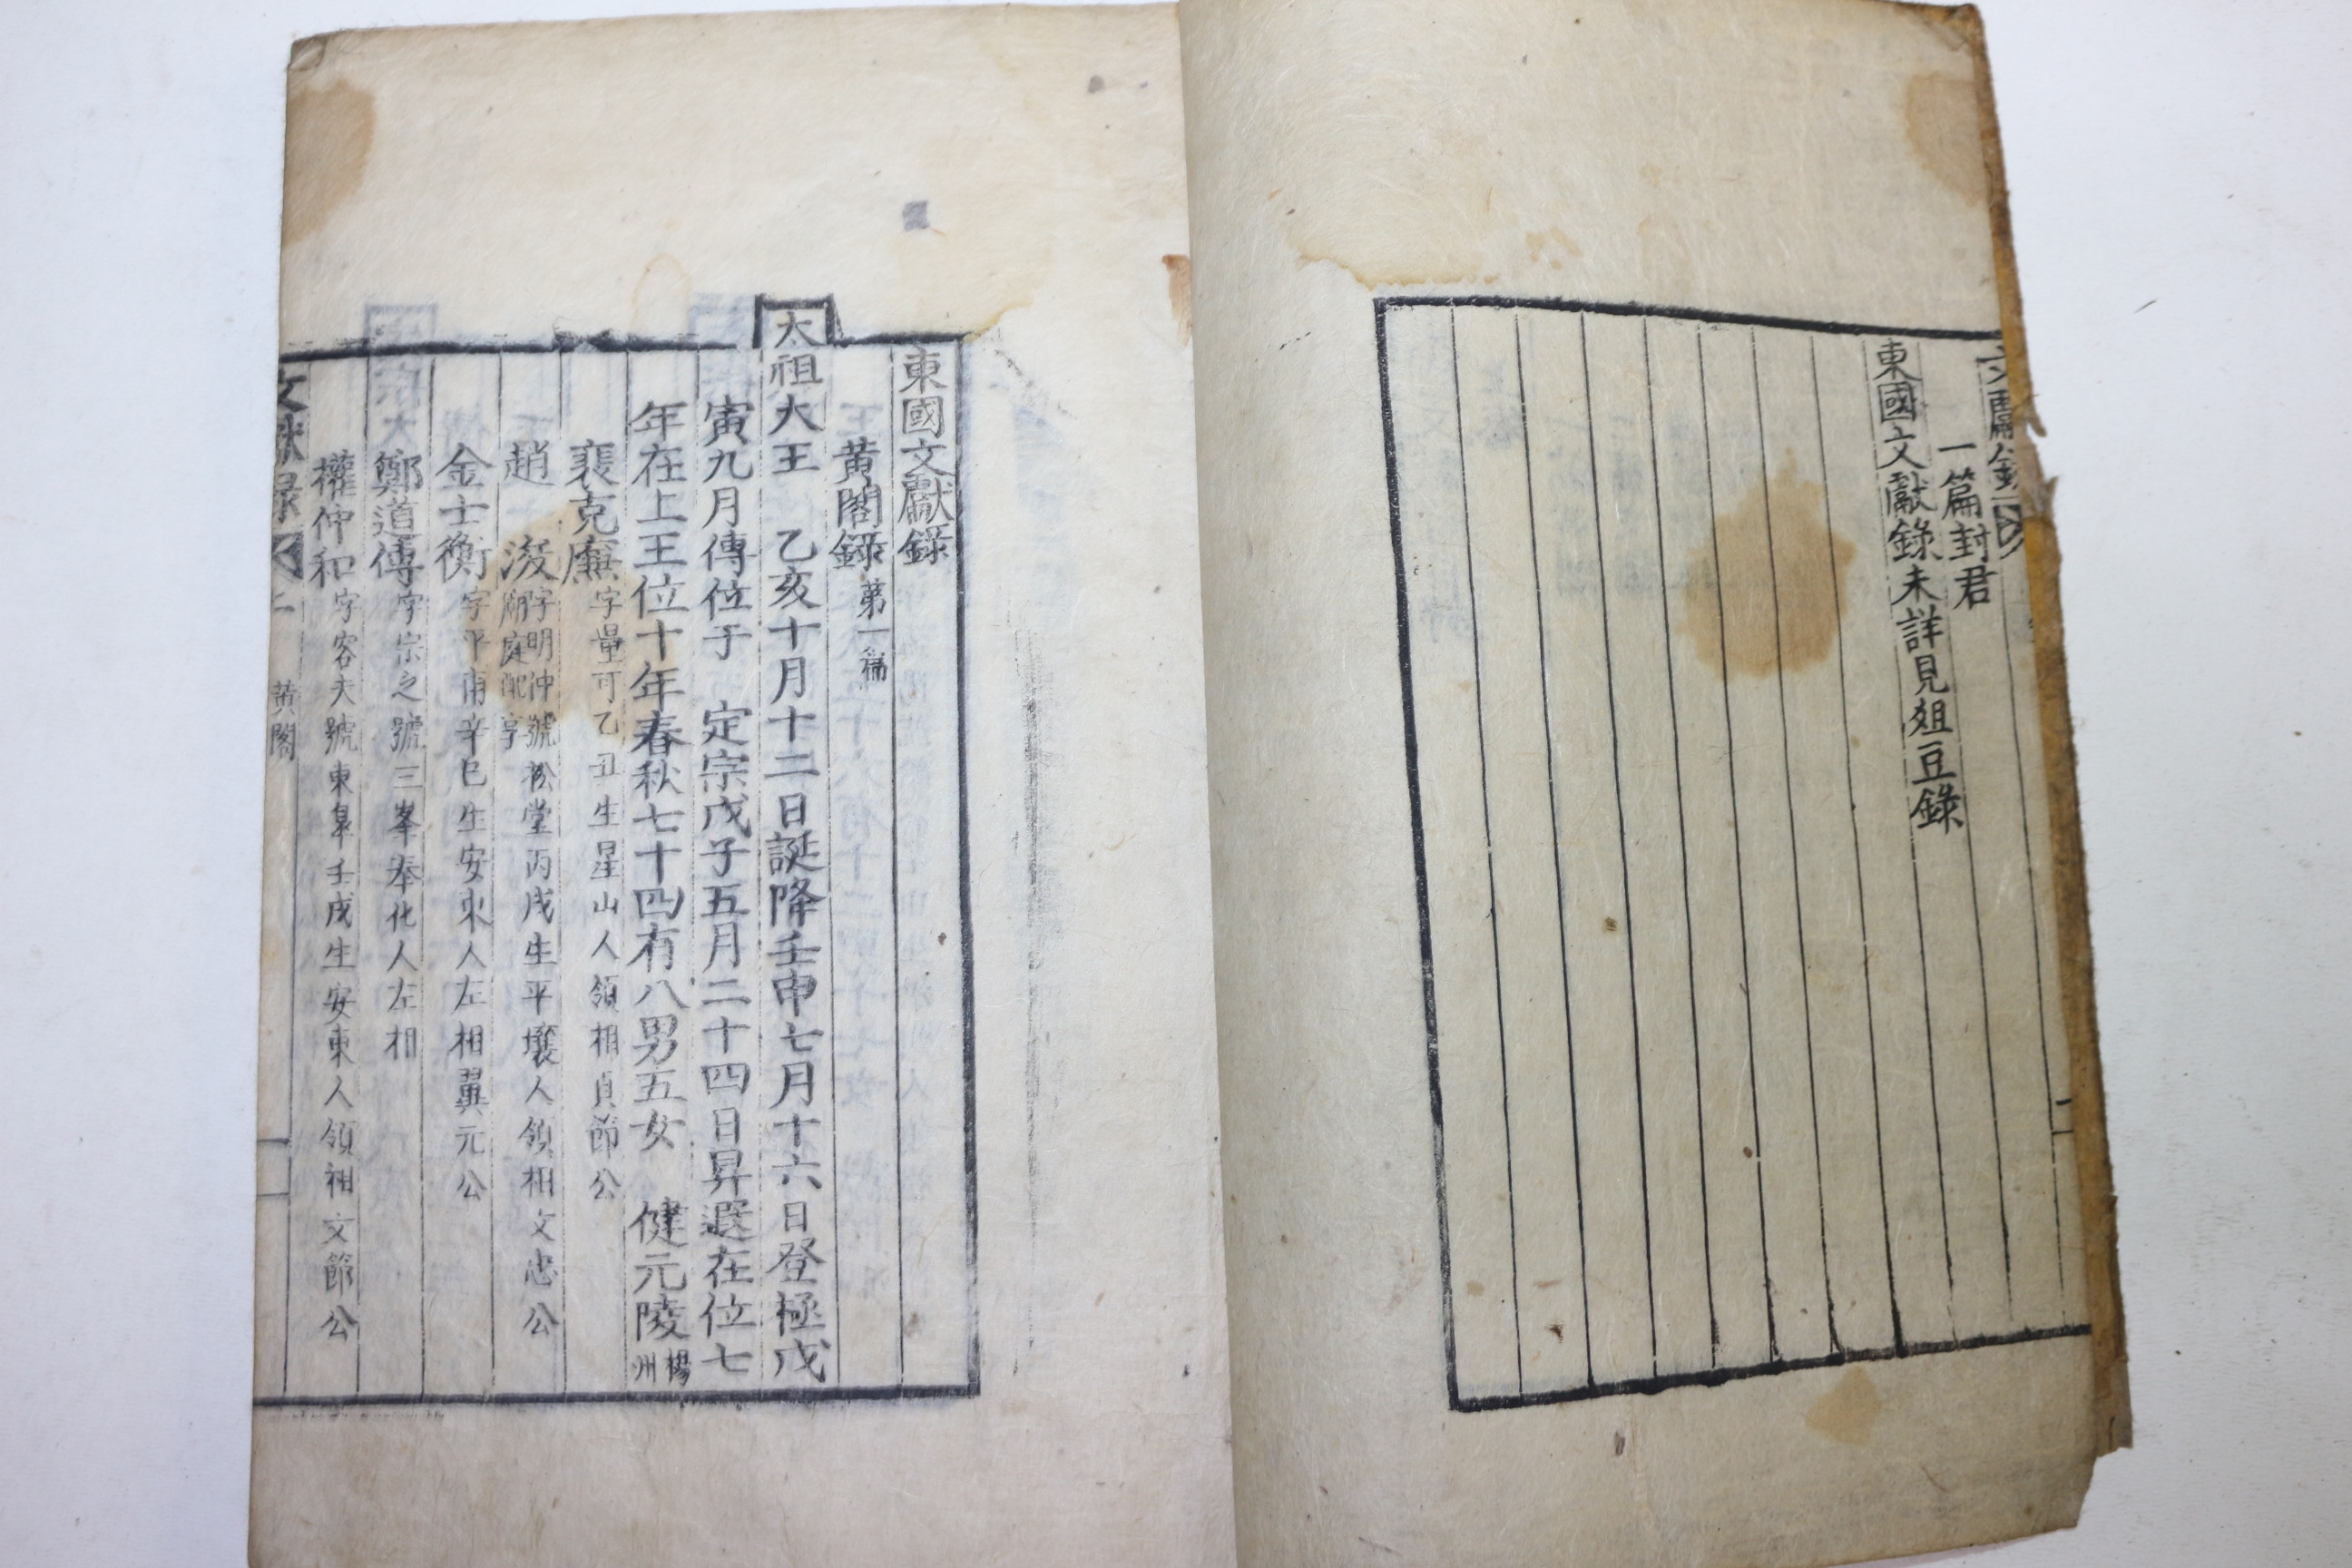 一篇封君
東國文獻錄未詳見俎豆錄
東國文獻錄
黃閣錄第一篇
太祖大王 乙亥十月十二日誕降壬申七月十六日登極戊
寅九月傳位于 定宗戊子五月二十四日昇遐在位七
年在上王位十年春秋七十四有八男五女 健元陵楊州
裵克廉字量可乙丑生星山人領相貞節公
趙浚字明仲號松堂丙戌生平壤人領相文忠公廟庭配享
金士衡字平甫辛巳生安東人左相翼元公
鄭道傳字宗之號三峯奉化人左相
權仲和字容夫號東皐壬戌生安東人領相文節公
文獻錄 黃閣